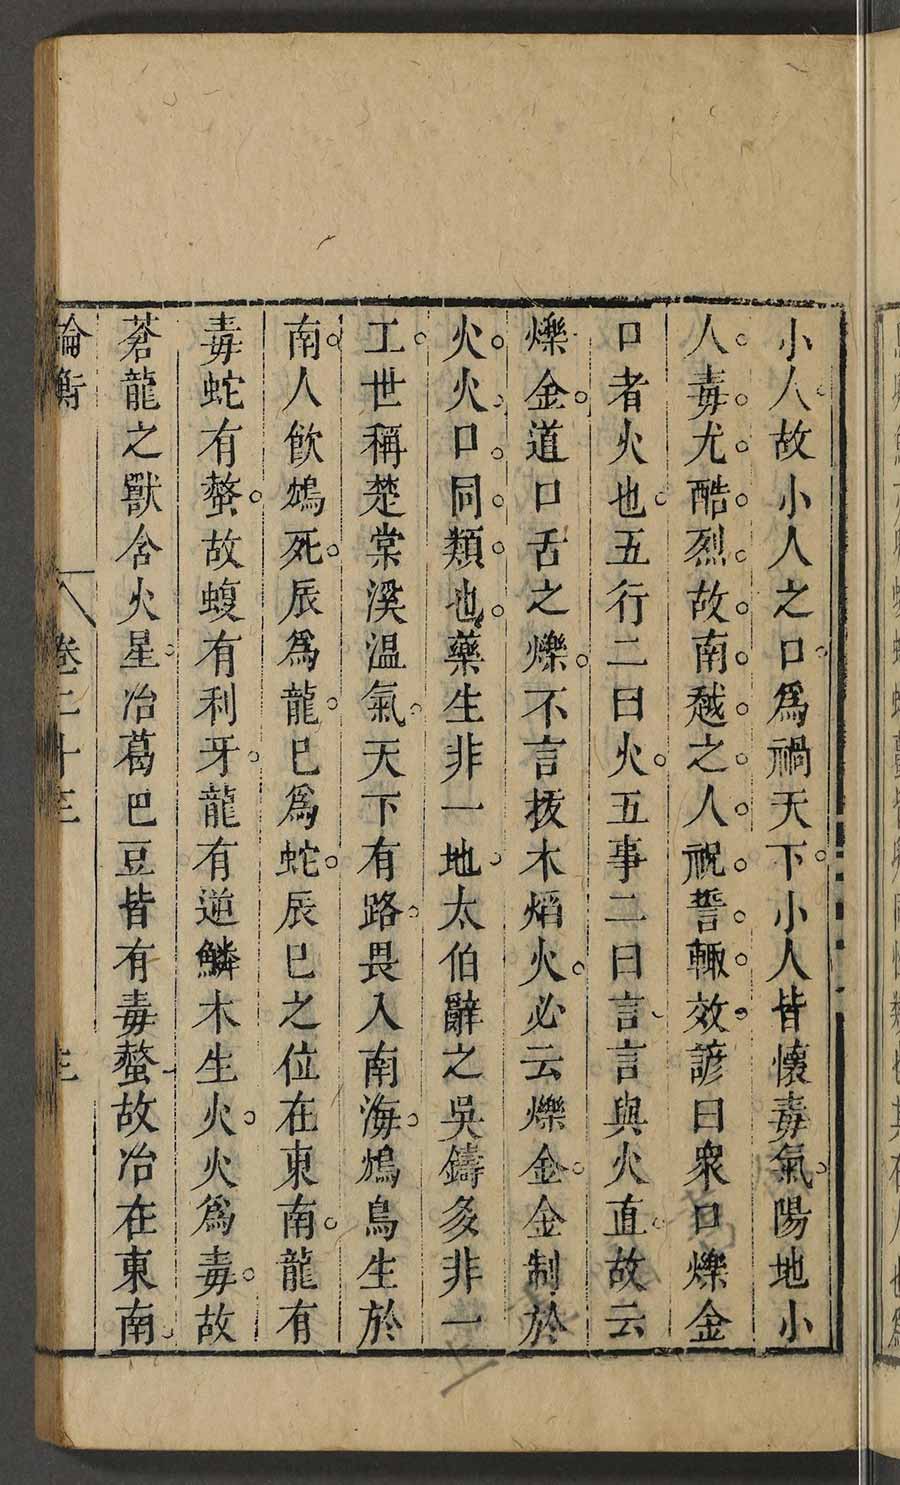 小人故小人之口爲禍天下小人皆懷毒氣陽地小
人毒尤酷烈故南越之人祝誓輒效諺曰衆口爍金
口者火也五行二曰火五事二曰言言與火直故云
爍金道口舌之爍不言拔木焰火必云爍金金制於
火火口同類也藥生非一地太伯辭之吳鑄多非一
工世稱楚棠溪温氣天下有路畏入南海鴆鳥生於
南人飲鴆死辰爲龍巳爲蛇辰巳之位在東南龍有
毒蛇有螫故蝮有利牙龍有逆鱗木生火火爲毒故
蒼龍之獸含火星冶葛巴豆皆有毒螫故冶在東南
論衡 卷二十三